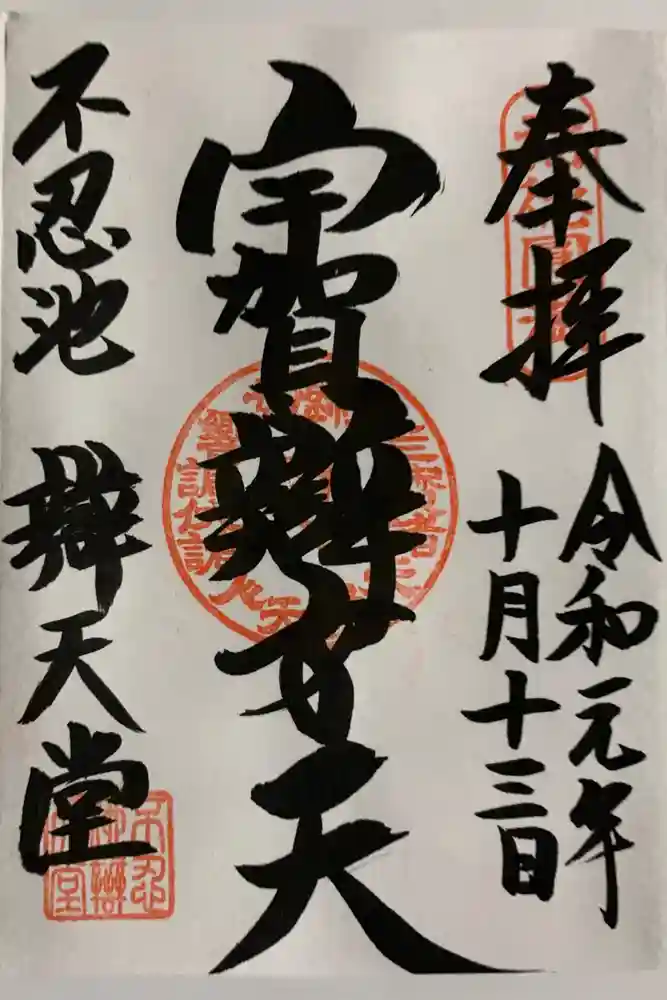 奉拝
令和元年
十月十三日
宇賀辯才天
不忍池
辯天堂